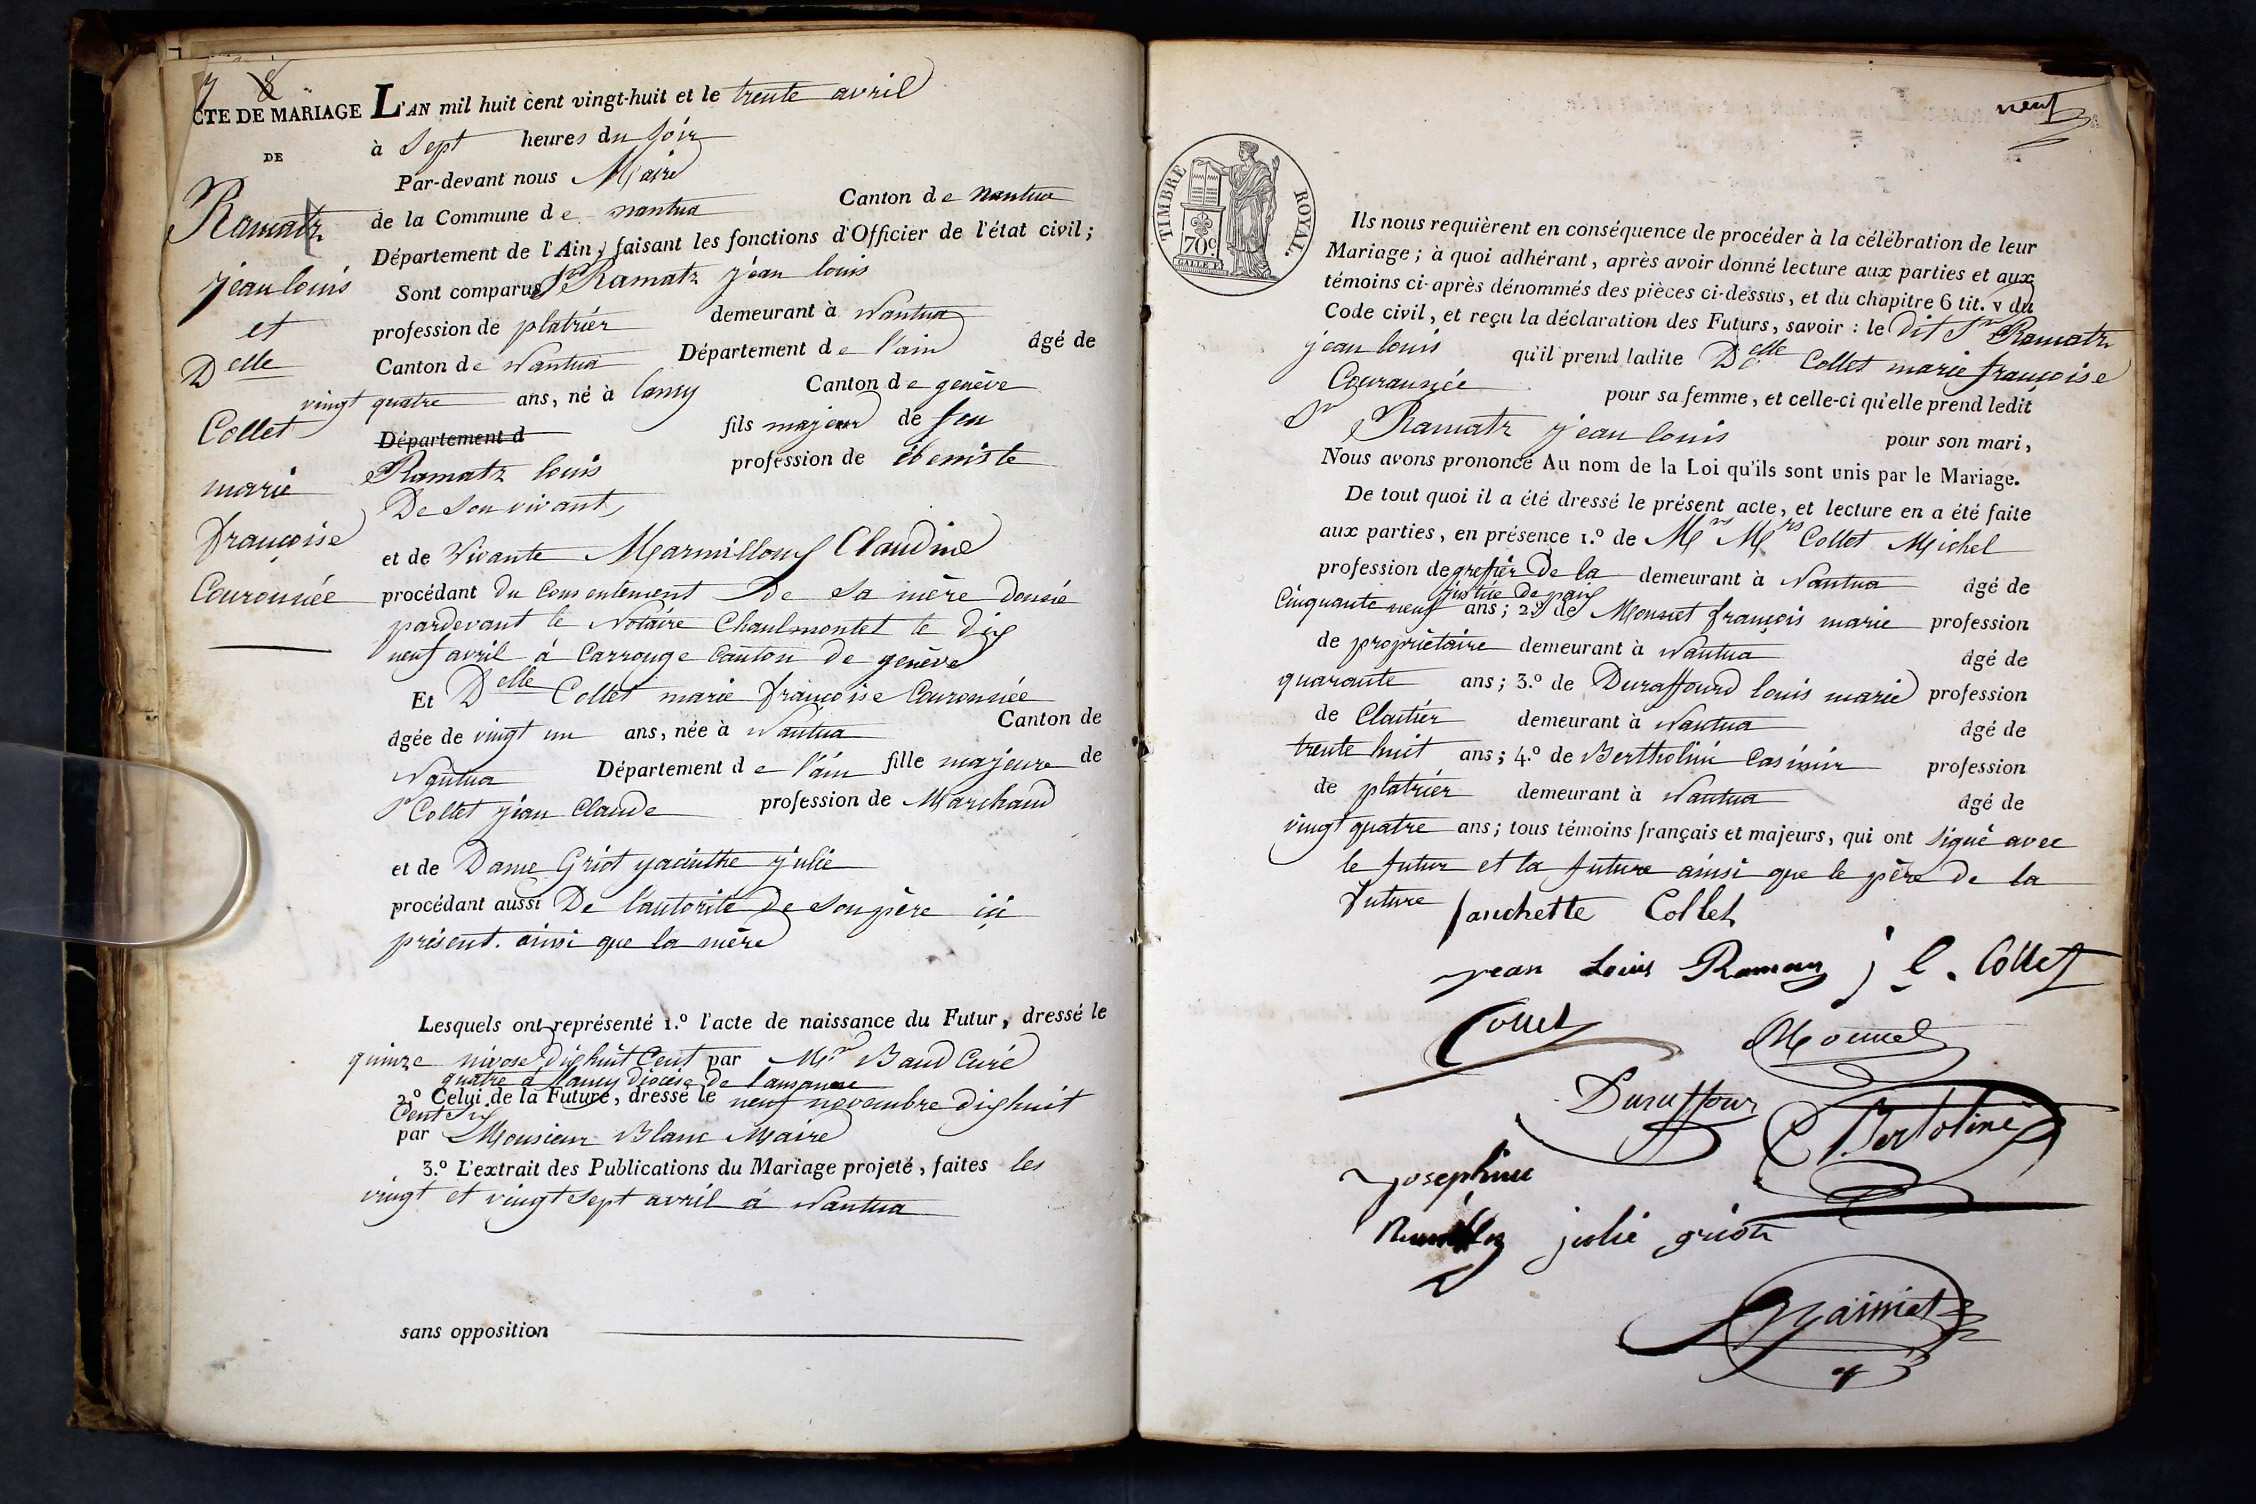 8
CTE DE MARIAGE
DE
Ramatz
jean louis
et
Delle
Collet
marie
françoise
Couronnée
L'AN mil huit cent vingt-huit et le trente avril
à Sept heures du Soir
Par-devant nous Maire
de la Commune de nantua Canton de nantua
Département de l'Ain, faisant les fonctions d'Officier de l'état civil;
Sont comparus Sr Ramatz jean louis
profession de platrier demeurant à Nantua
Canton de Nantua Département de l'ain âgé de
vingt quatre ans, né à lancy Canton de genève
Département d fils majeur de feu
Ramatz louis profession de ébeniste
De Son vivant
et de Vivante Marmilloux Claudine
procédant du Consentement De Sa mère donné
pardevant le Notaire Chaulmontet le dix
neuf avril à Carrouge Canton de genève
Et Delle Collet marie françoise Couronnée
âgée de vingt un ans, née à Nantua Canton de
Nantua Département de l'ain fille majeure de
Sr Collet jean Claude profession de Marchand
et de Dame Griot yacinthe julie
procédant aussi De l'autorité De Son père ici
présent. ainsi que la mère
Lesquels ont représenté 1.º l'acte de naissance du Futur, dressé le
quinze nivose dix huit Cent par Mr Baud Curé
quatre à lancy diocèse de lausanne
2.º Celui de la Future, dressé le neuf novembre dix huit
Cent Six
par Monsieur Blanc Maire
3.º L'extrait des Publications du Mariage projeté, faites les
vingt et vingt Sept avril à Nantua
sans opposition
neuf
TIMBRE ROYAL.
70c.
Ils nous requièrent en conséquence de procéder à la célébration de leur
Mariage; à quoi adhérant, après avoir donné lecture aux parties et aux
témoins ci-après dénommés des pièces ci-dessus, et du chapitre 6 tit. v du
Code civil, et reçu la déclaration des Futurs, savoir: le dit Sr Ramatz
jean louis qu'il prend ladite Delle Collet marie françoise
Couronnée pour sa femme, et celle-ci qu'elle prend ledit
Sr Ramatz jean louis pour son mari,
Nous avons prononcé Au nom de la Loi qu'ils sont unis par le Mariage.
De tout quoi il a été dressé le présent acte, et lecture en a été faite
aux parties, en présence 1.º de Mrs Mrs Collet Michel
profession de grefier De la demeurant à Nantua âgé de
justice De paix
Cinquante neuf ans; 2.º de Monnet françois marie profession
de propriétaire demeurant à Nantua âgé de
quarante ans; 3.º de Duraffourd louis marie profession
de Cloutier demeurant à Nantua âgé de
trente huit ans; 4.º de Bertholini Casimir profession
de platrier demeurant à Nantua âgé de
vingt quatre ans; tous témoins français et majeurs, qui ont Signé avec
le futur et la future ainsi que le père De la
future
fanchette Collet
jean Louis Ramaz j C. Collet
Collet Monnet
Duraffour C Bertolini
Josephine
julie griot